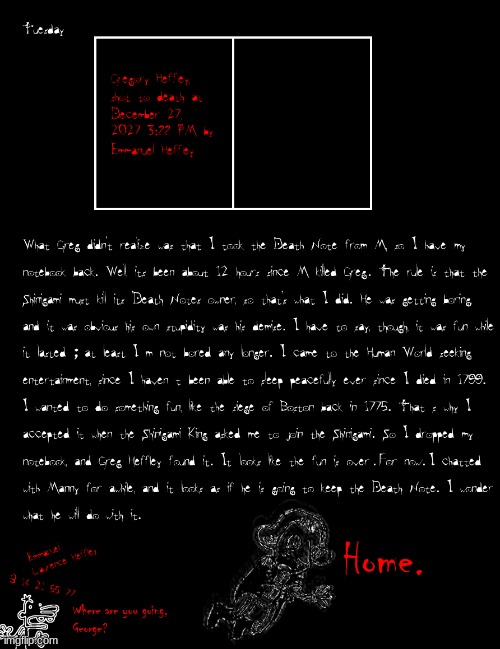 Tuesday
Gregory Heffley
shot to death at
December 27,
2027 3:22 PM by
Emmanuel Heffley
What Greg didn't realize was that I took the Death Note from M so I have my
notebook back. Well its been about 12 hours since M killed Greg. The rule is that the
Shinigami must kill its Death Notes owner, so that's what I did. He was getting boring
and it was obvious his own stupidity was his demise. I have to say, though, it was fun while
it lasted ; at least I m not bored any longer. I came to the Human World seeking
entertainment, since I haven t been able to sleep peacefully ever since I died in 1799.
I wanted to do something fun, like the siege of Boston back in 1775. That s why I
accepted it when the Shinigami King asked me to join the Shinigami. So I dropped my
notebook, and Greg Heffley found it. It looks like the fun is over .For now. I chatted
with Manny for awhile, and it looks as if he is going to keep the Death Note. I wonder
what he will do with it.
Home.
Emmanuel
Laurence Heffley
Where are you going,
George?
imgflip.com